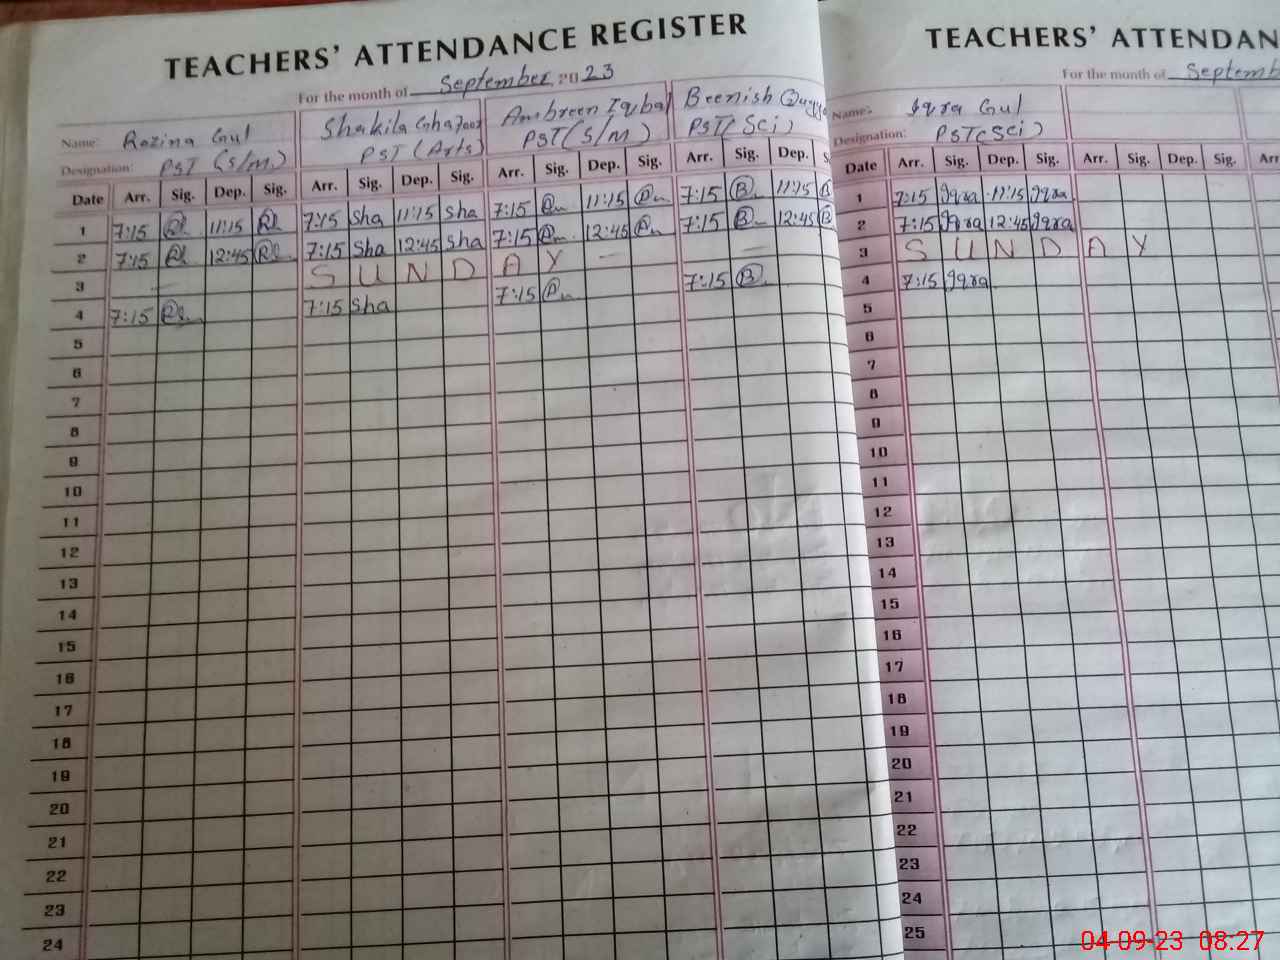 TEACHERS' ATTENDANCE REGISTER
For the month of September 2023
Name: Rozina Gul Shakila Ghafoor Ambreen Iqbal Beenish
Designation: PST (S/M) PST (Arts) PST (S/M) PST (Sci)
Date Arr. Sig. Dep. Sig. Arr. Sig. Dep. Sig. Arr. Sig. Dep. Sig. Arr. Sig. Dep. S
1 7:15 11:15 7:15 Sha 11:15 Sha 7:15 11:15 7:15 B 11:15 B
2 7:15 12:45 7:15 Sha 12:45 Sha 7:15 12:45 7:15 B 12:45 B
3 SUNDAY
4 7:15 7:15 Sha 7:15 7:15 B
5
6
7
8
9
10
11
12
13
14
15
16
17
18
19
20
21
22
23
24
TEACHERS' ATTENDAN
For the month of Septemb
Name: Iqra Gul
Designation: PST (Sci)
Date Arr. Sig. Dep. Sig. Arr. Sig. Dep. Sig. Arr
1 7:15 Iqra 11:15 Iqra
2 7:15 Iqra 12:45 Iqra
3 SUNDAY
4 7:15 Iqra
5
6
7
8
9
10
11
12
13
14
15
16
17
18
19
20
21
22
23
24
25
04-09-23 08:27